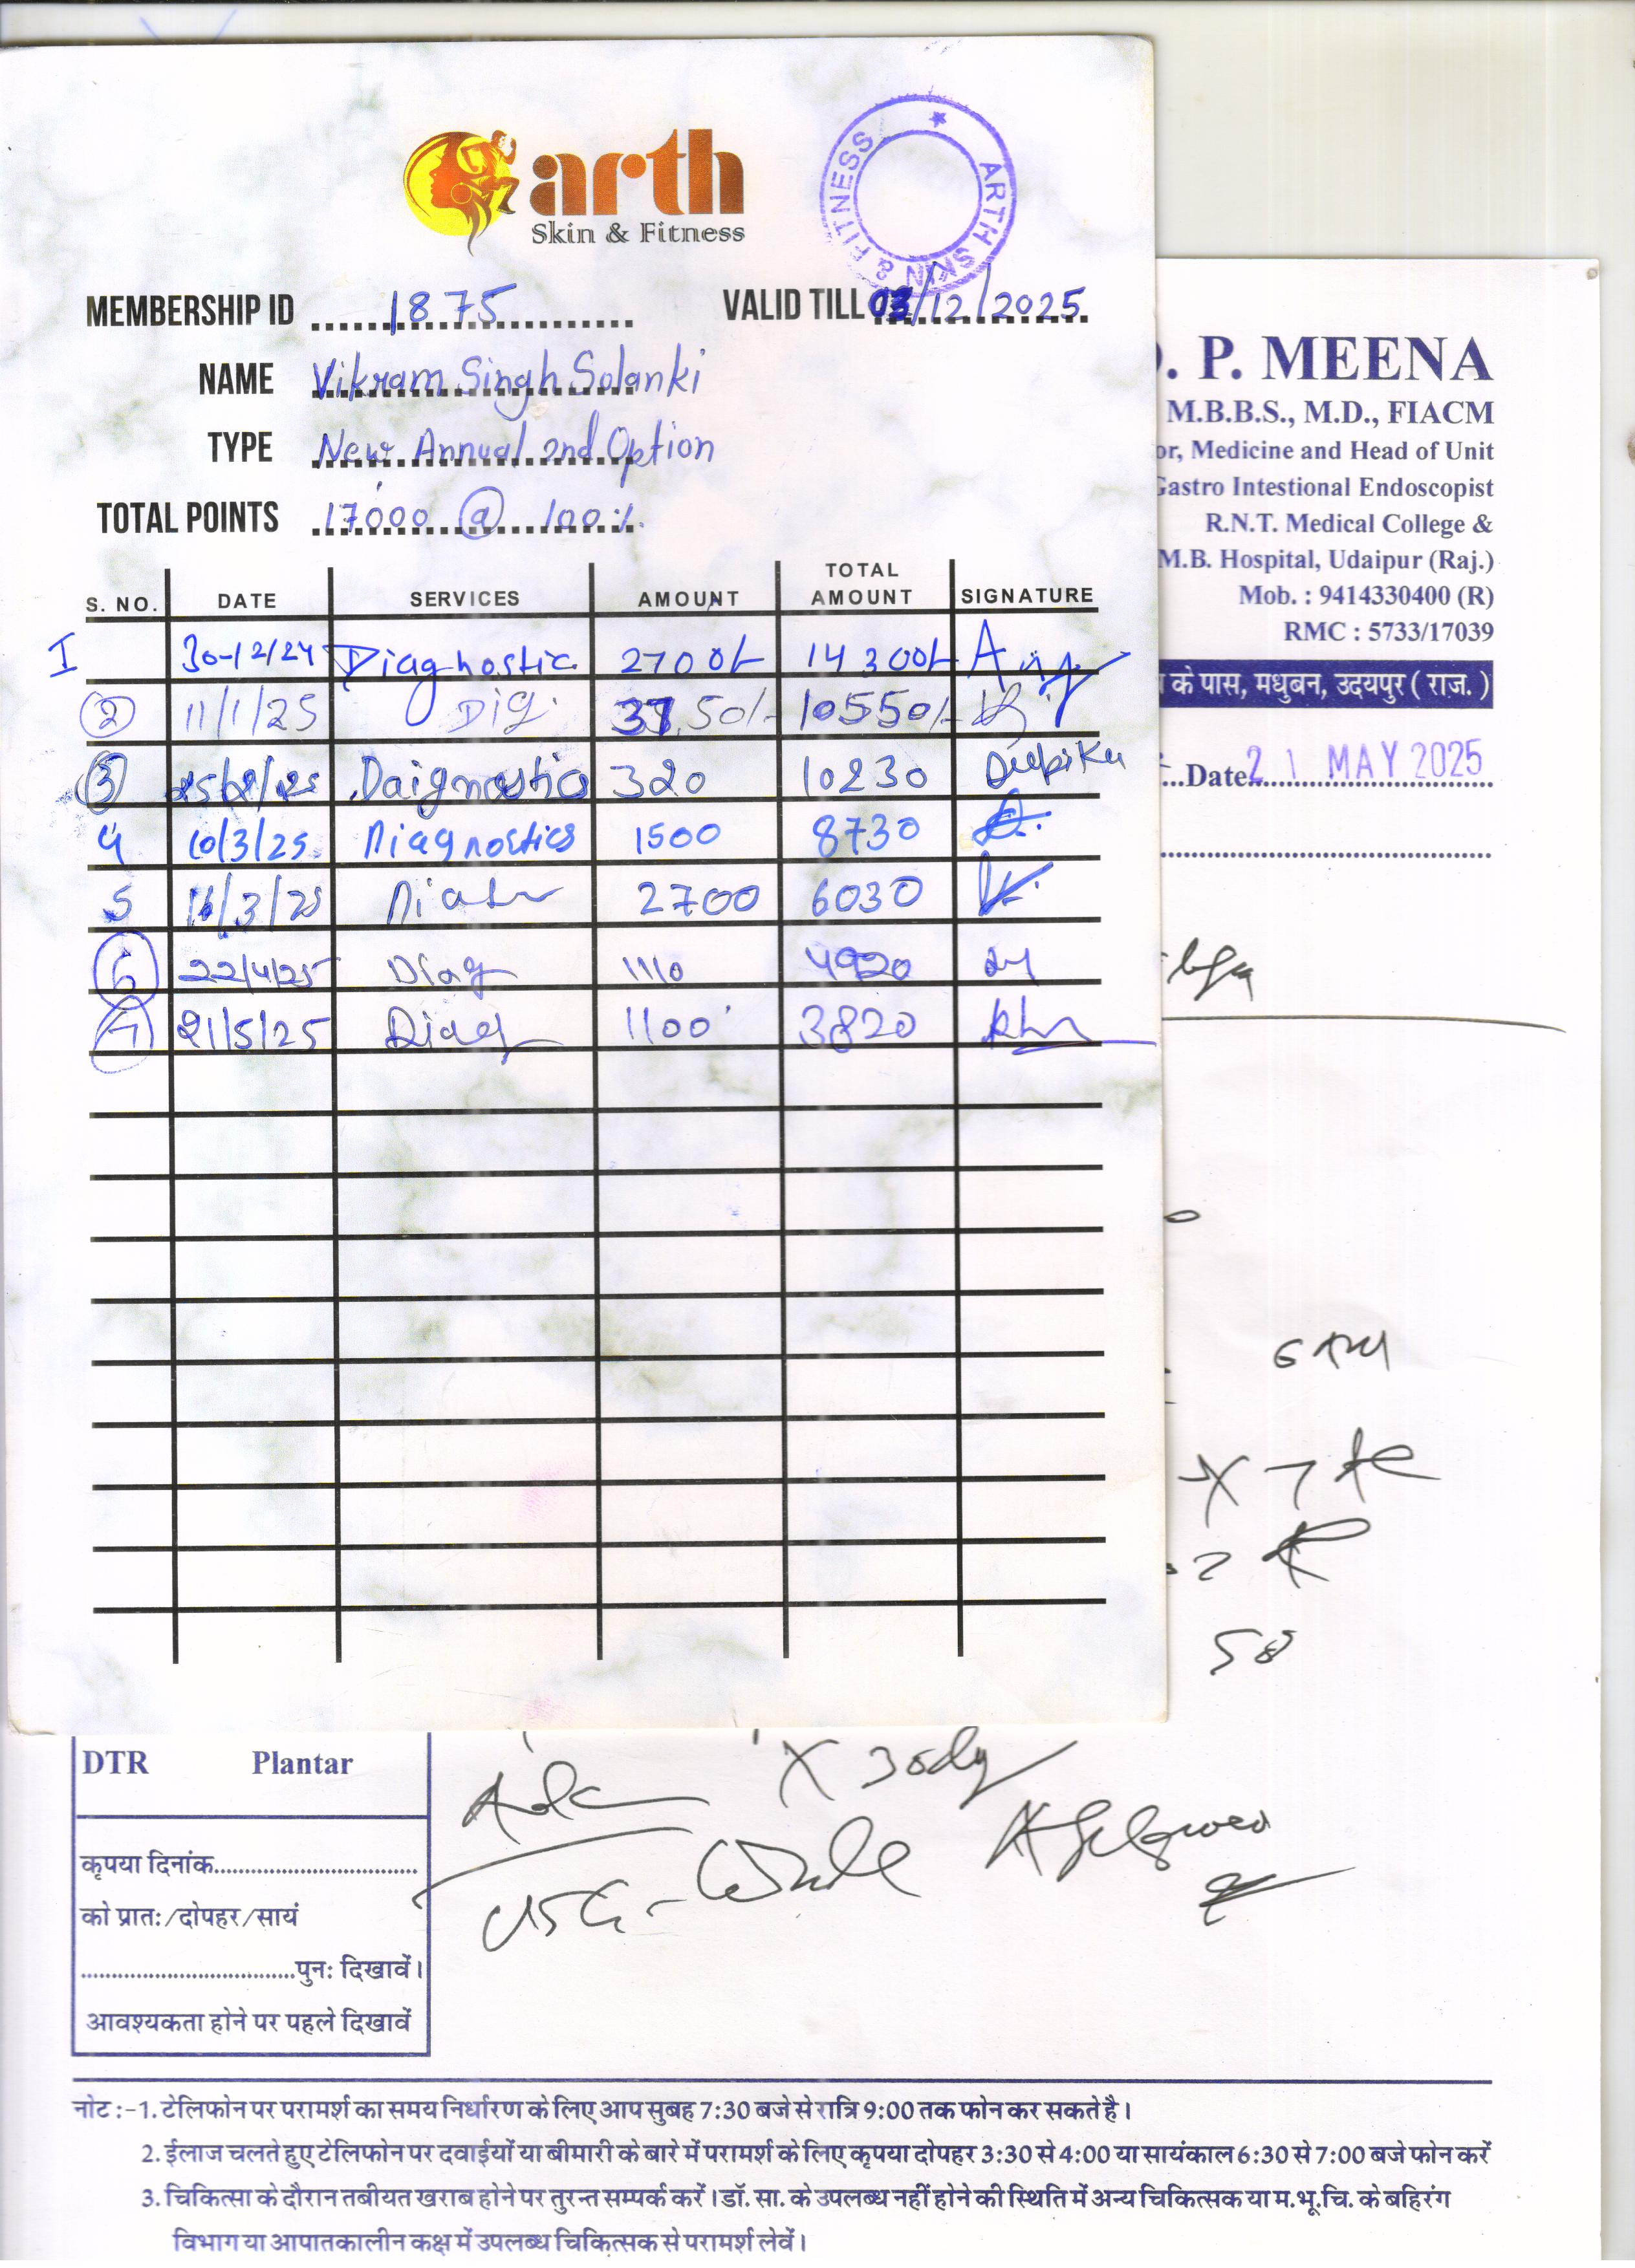 arth
Skin & Fitness
ARTH SKIN & FITNESS
MEMBERSHIP ID 1875 VALID TILL 03/12/2025
NAME Vikram Singh Solanki
TYPE New Annual 2nd Option
TOTAL POINTS 17000 @ 100%
S. NO. DATE SERVICES AMOUNT TOTAL AMOUNT SIGNATURE
I 30-12/24 Diagnostic 2700/- 14300/-
2 11/1/25 Dig. 3750/- 10550/-
3 25/2/25 Daignostics 320 10230 Deepika
4 10/3/25 Diagnostics 1500 8730
5 11/3/25 2700 6030
6 22/4/25 Diag 1110 4920
7 21/5/25 Diag 1100 3820
. P. MEENA
M.B.B.S., M.D., FIACM
or, Medicine and Head of Unit
Gastro Intestional Endoscopist
R.N.T. Medical College &
M.B. Hospital, Udaipur (Raj.)
Mob. : 9414330400 (R)
RMC : 5733/17039
के पास, मधुबन, उदयपुर ( राज. )
Date 21 MAY 2025
X 7
X 3
USG - Whole
DTR Plantar
कृपया दिनांक
को प्रातः/दोपहर/सायं
पुनः दिखावें।
आवश्यकता होने पर पहले दिखावें
नोट :-1. टेलिफोन पर परामर्श का समय निर्धारण के लिए आप सुबह 7:30 बजे से रात्रि 9:00 तक फोन कर सकते है।
2. ईलाज चलते हुए टेलिफोन पर दवाईयों या बीमारी के बारे में परामर्श के लिए कृपया दोपहर 3:30 से 4:00 या सायंकाल 6:30 से 7:00 बजे फोन करें
3. चिकित्सा के दौरान तबीयत खराब होने पर तुरन्त सम्पर्क करें। डॉ. सा. के उपलब्ध नहीं होने की स्थिति में अन्य चिकित्सक या म.भू.चि. के बहिरंग
विभाग या आपातकालीन कक्ष में उपलब्ध चिकित्सक से परामर्श लेवें।